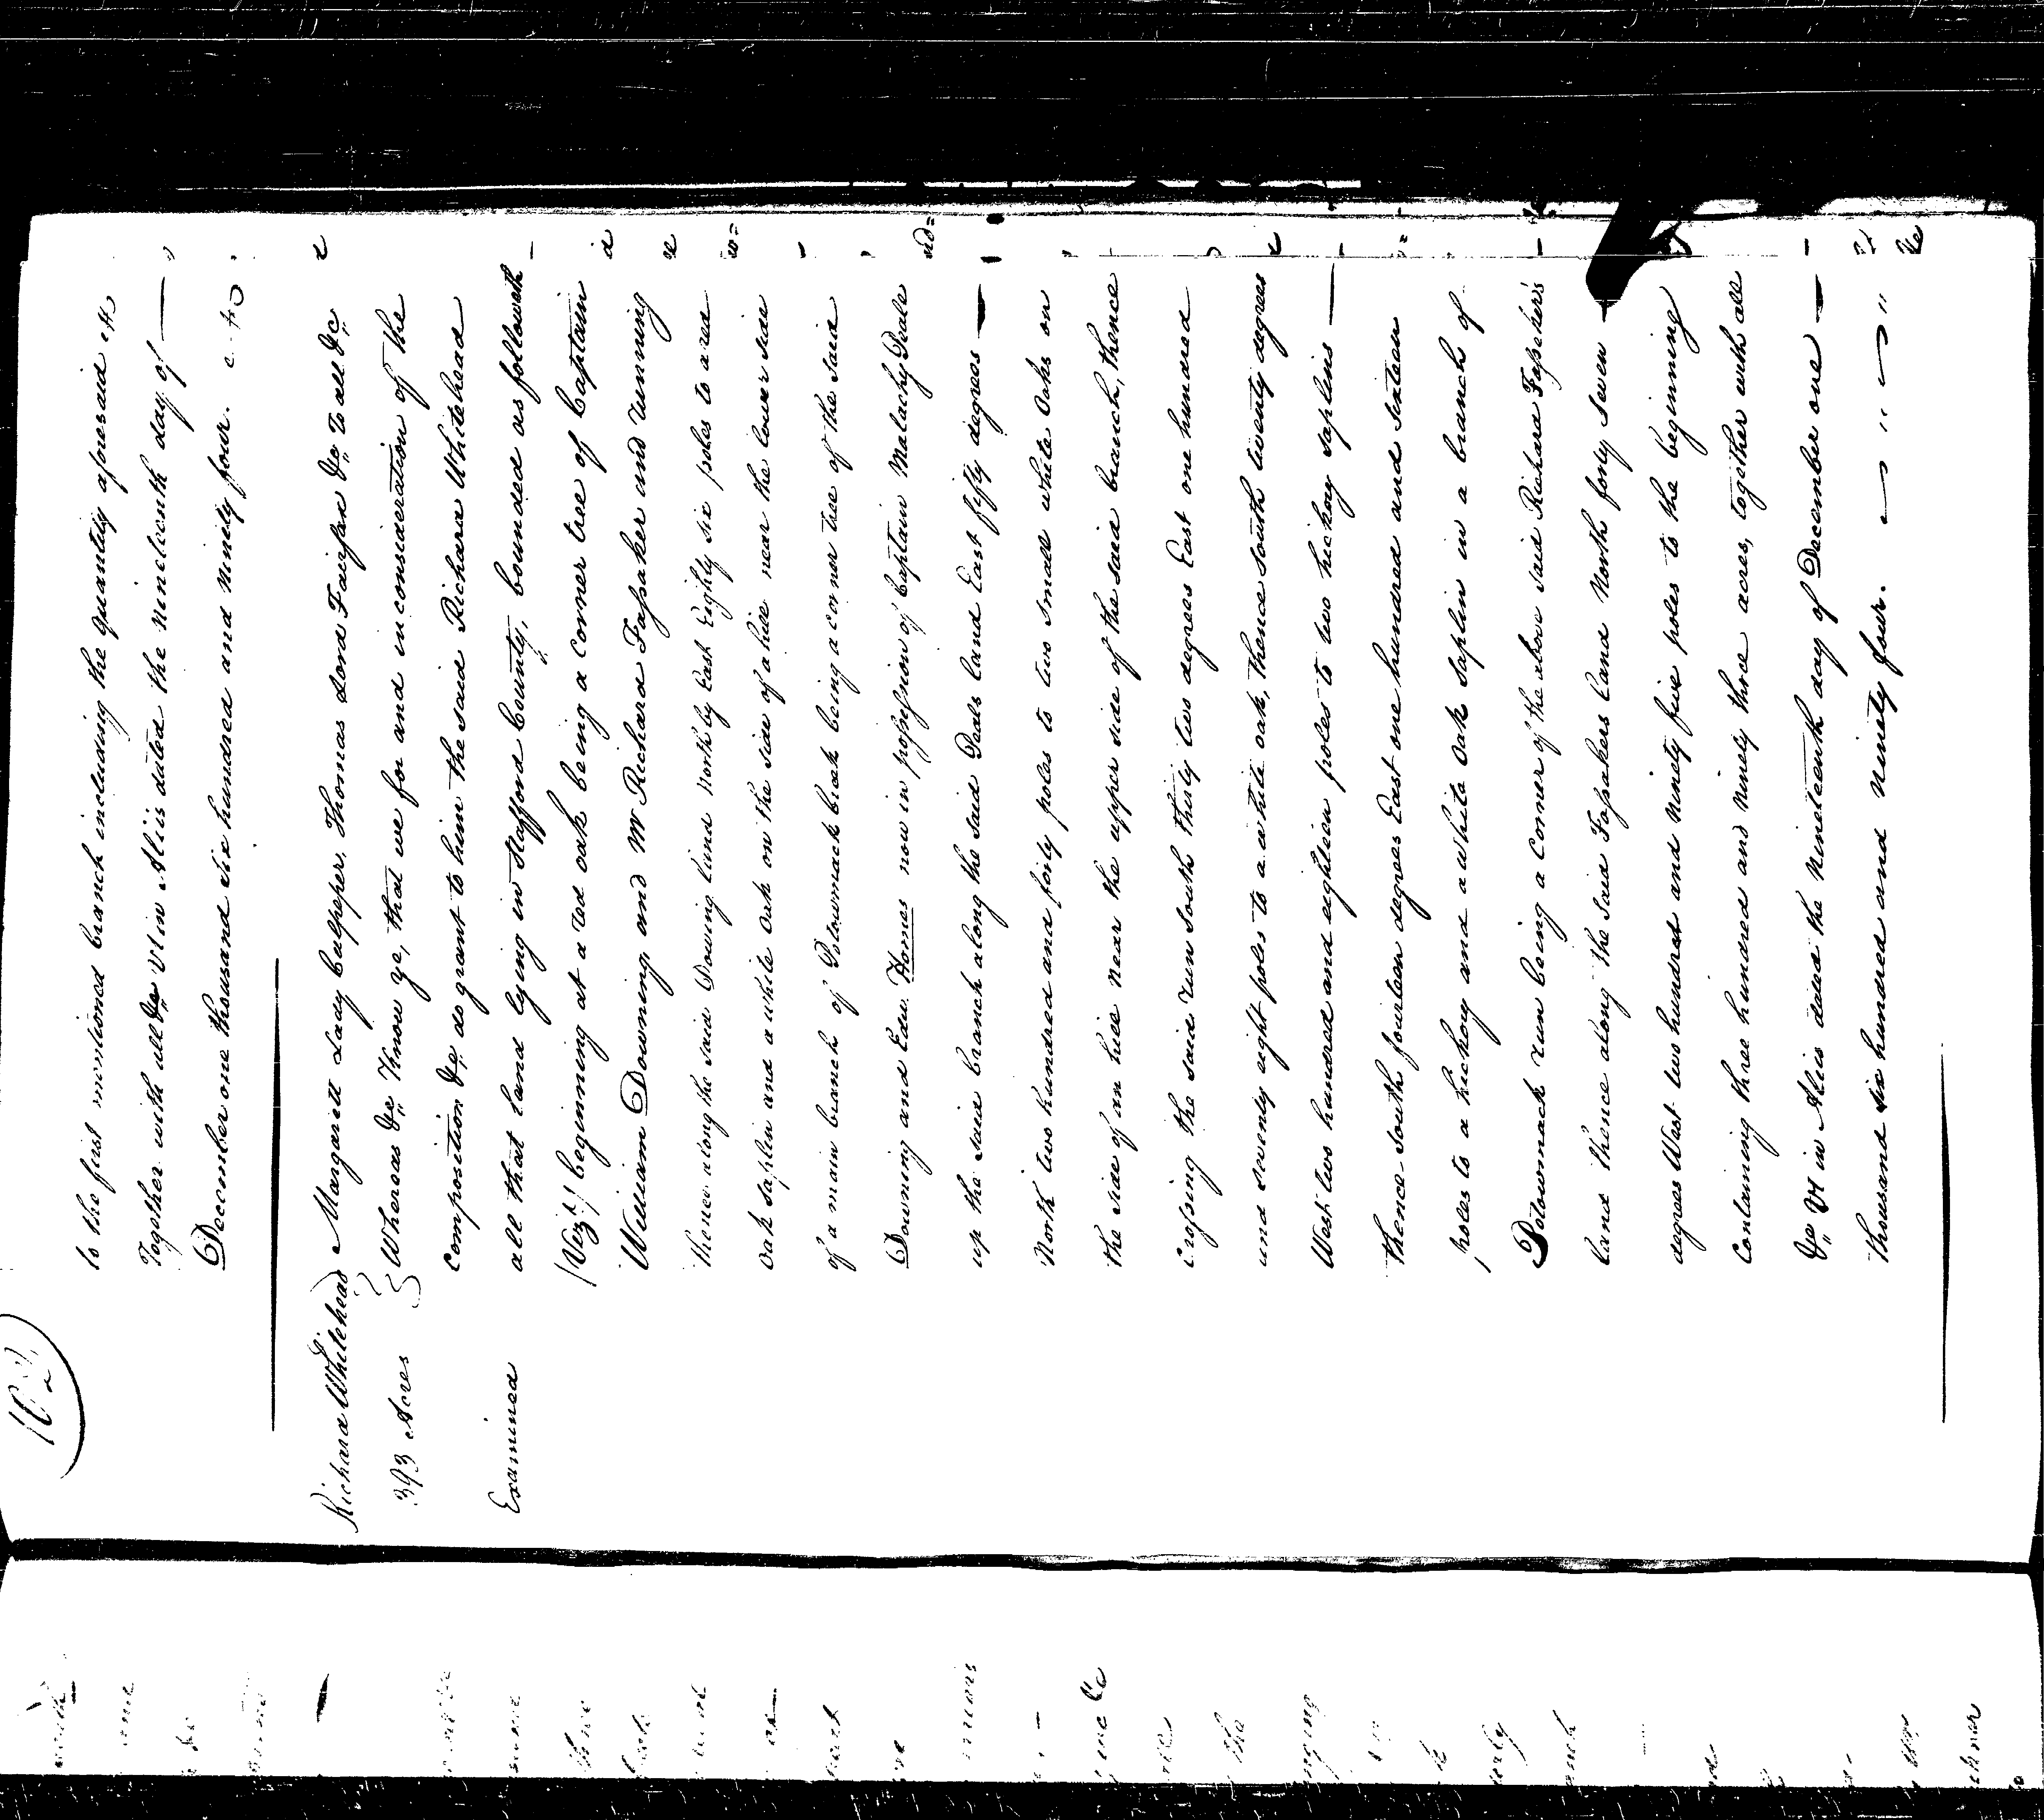 102
to the first mentioned branch including the quantity aforesaid &c
Together with all &c Vt in Aliis dated the nineteenth day of —
December one thousand six hundred and ninety four.
Richard Whitehead
393 Acres
Examined
Margarett Lady Culpeper, Thomas Lord Fairfax &c To all &c
Whereas &c Know ye, that we for and in consideration of the
Composition &c do grant to him the said Richard Whitehead
all that land lying in Stafford County, bounded as followeth
(Vizt) beginning at a red oak being a Corner tree of Captain
William Downing, and Mr Richard Fossaker and running
thence along the said Downing land North by East Eighty six poles to a red
oak saplin and a white oak on the side of a hill near the lower side
of a main branch of Potowmack Creek being a corner tree of the said
Downing and Edw. Homes now in possession of Captain Malachy Peale
up the said branch along the said Peals land East fifty degrees —
North two hundred and forty poles to two small white Oaks on
the side of an hill near the upper side of the said branch, thence
crossing the said run South thirty two degrees East one hundred
and seventy eight poles to a white oak, thence South twenty degrees
West two hundred and eighteen poles to two hickory saplins —
thence South fourteen degrees East one hundred and sixteen
poles to a hickory and a white Oak saplin in a branch of
Potowmack run being a Corner of the above said Richard Fossaker's
land thence along the said Fossakers land North forty seven —
degrees West two hundred and ninety five poles to the beginning
Containing three hundred and ninety three acres, together with all
&c Vt in Aliis dated the Nineteenth day of December one —
thousand six hundred and ninety four.